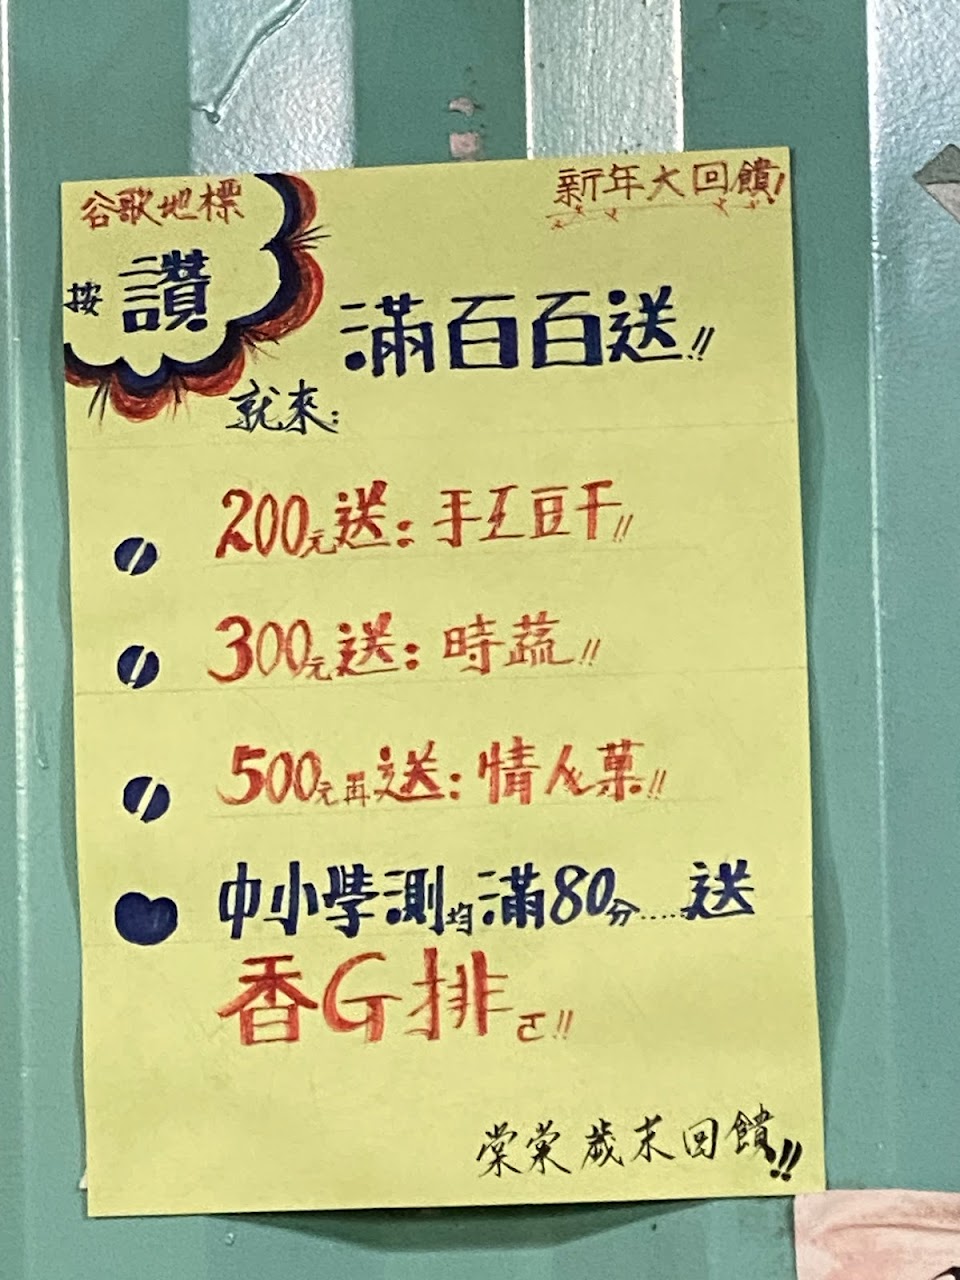 谷歌地標
新年大回饋!
按讚
滿百百送!!
就來:
200元送:手工豆干!!
300元送:時蔬!!
500元再送:情人菓!!
中小學測均滿80分....送
香G排!!
棠棠歲末回饋!!